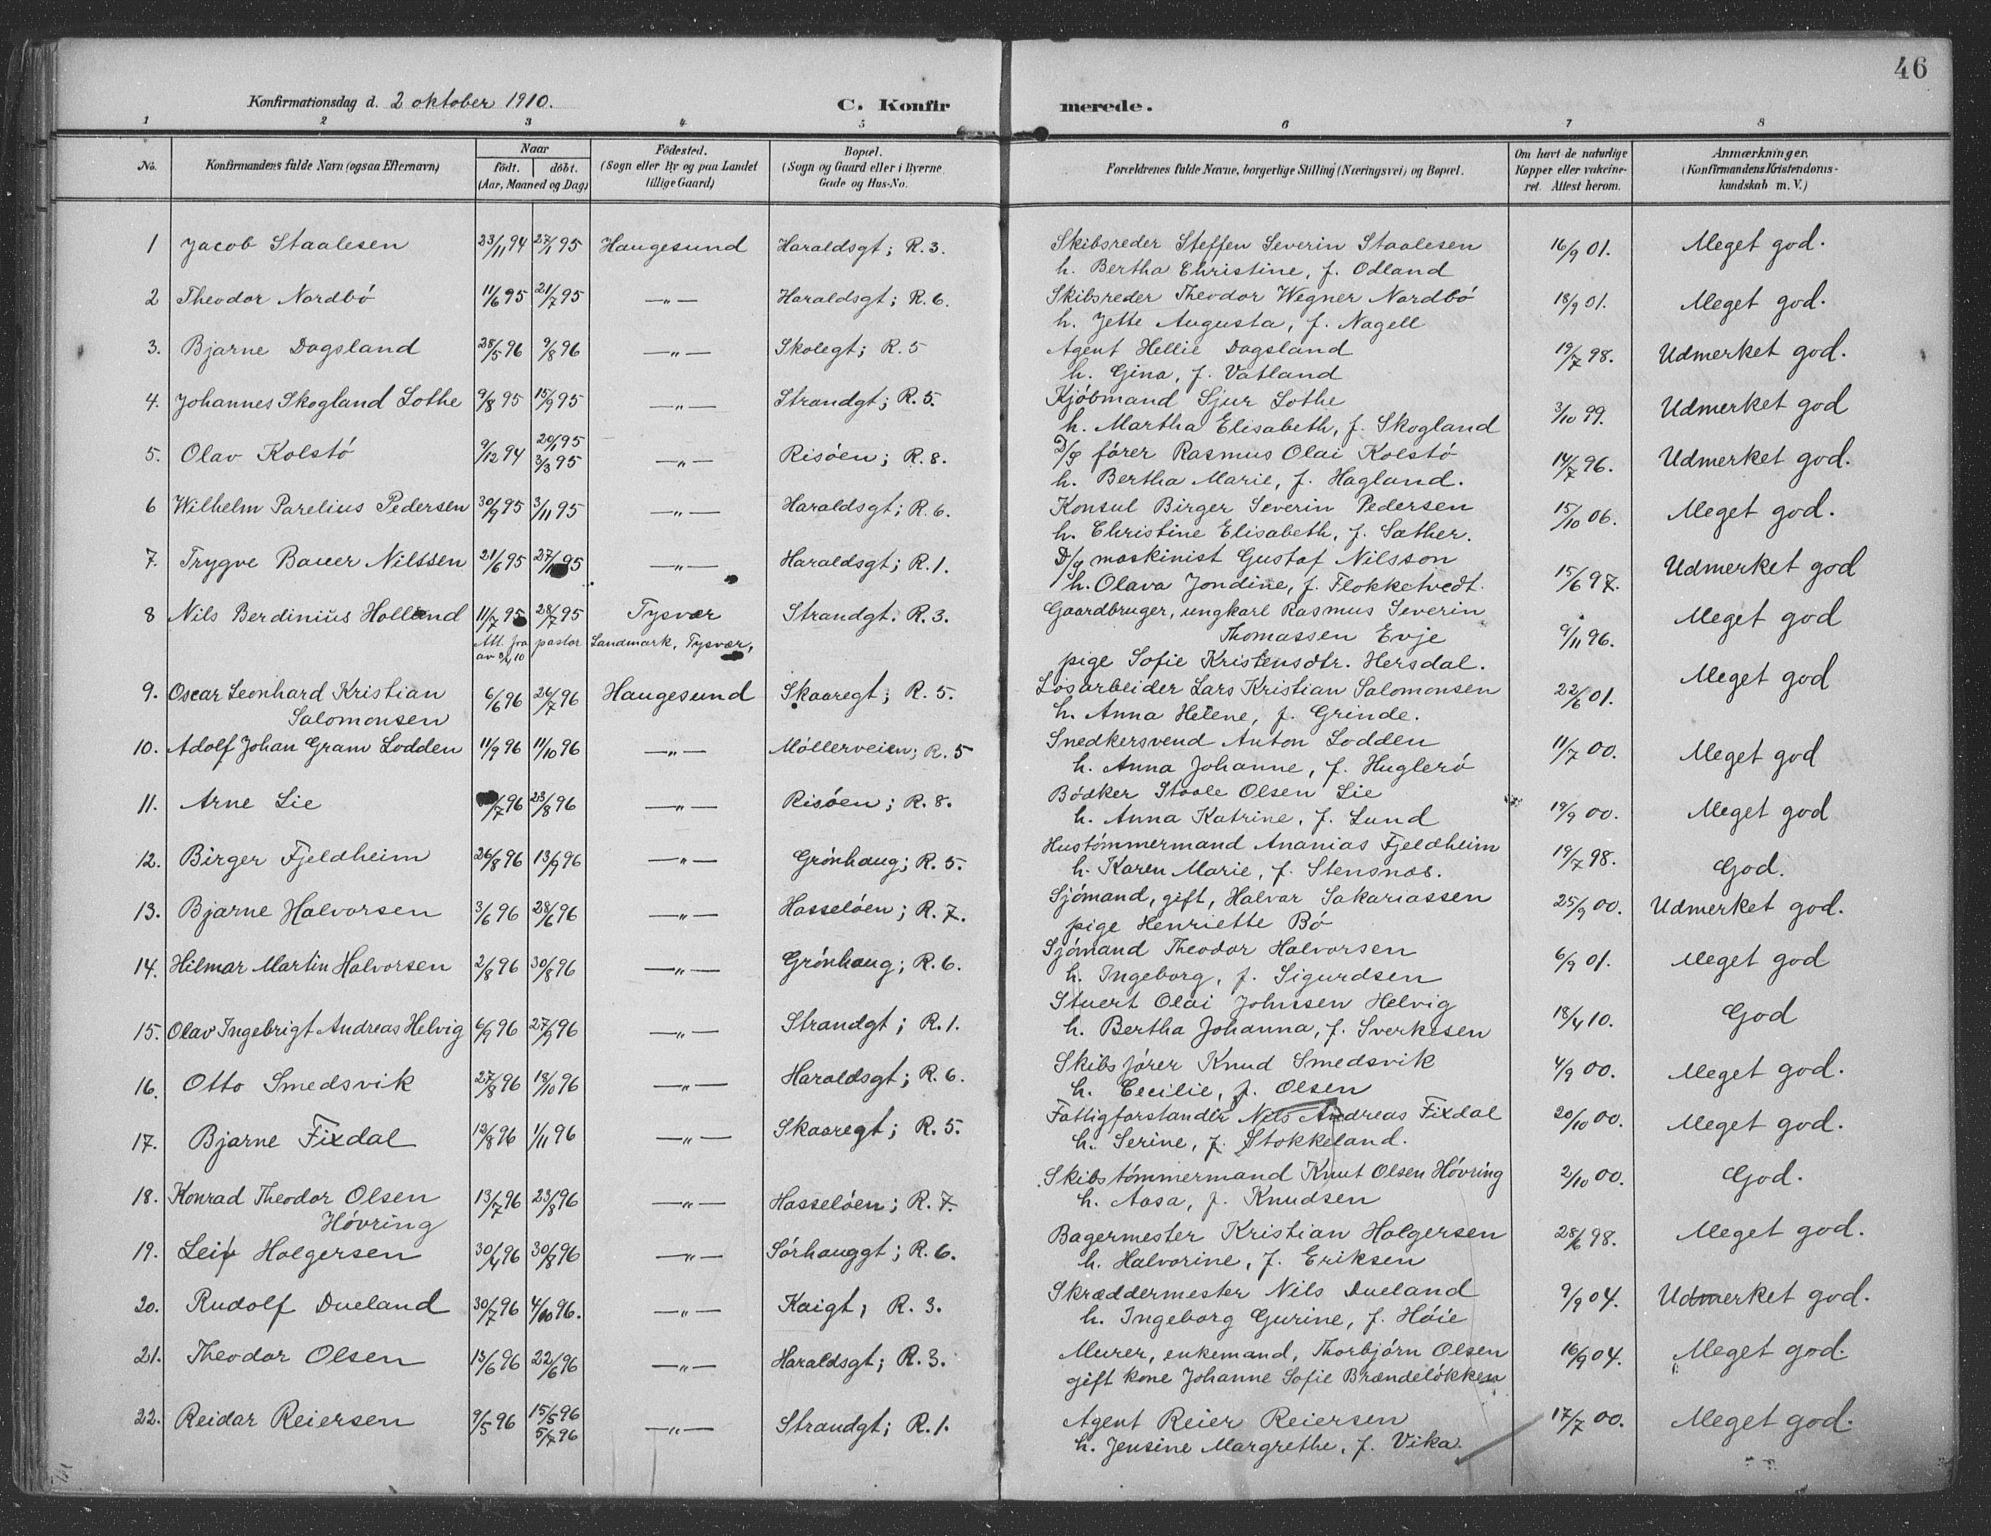 46
Konfirmationsdag d. 2 oktober 1910.
C. Konfirmerede.
1 2 3 4 5 6 7 8
No. Konfirmandens fulde Navn (ogsaa Efternavn)
Naar
födt. döbt.
(Aar, Maaned og Dag)
Födested.
(Sogn eller By og paa Landet
tillige Gaard)
Bopæl.
(Sogn og Gaard eller i Byerne
Gade og Hus-No.
Forældrenes fulde Navne, borgerlige Stilling (Næringsvei) og Bopæl.
Om havt de naturlige
Kopper eller vakcine-
ret. Attest herom.
Anmærkninger.
(Konfirmandens Kristendoms-
kundskab m. V.)
1 Jacob Staalesen 23/11 94 27/1 95 Haugesund Haraldsgt; R. 3. Skibsreder Steffen Severin Staalesen 16/9 01. Meget god.
h. Bertha Christine, f. Odland
2 Theodor Nordbö 11/6 95 21/7 95 —„— Haraldsgt; R. 6. Skibsreder Theodor Wegner Nordbö 18/9 01. Meget god.
h. Jette Augusta, f. Nagell
3. Bjarne Dagsland 28/5 96 9/8 96 —„— Skolegt; R. 5 Agent Hellie Dagsland 19/7 98. Udmerket god.
h. Gina, f. Vatland
4. Johannes Skogland Lothe 9/8 95 15/9 95 —„— Strandgt; R. 5. Kjöbmand Sjur Lothe 3/10 99. Udmerket god
h. Martha Elisabeth, f. Skogland
5. Olav Kolstö 9/12 94 20/1 95 —„— Risöen; R. 8. D/s förer Rasmus Olai Kolstö 14/7 96. Udmerket god.
3/3 95 h. Bertha Marie, f. Hagland.
6 Wilhelm Parelius Pedersen 30/9 95 3/11 95 —„— Haraldsgt; R. 6. Konsul Birger Severin Pedersen 15/10 06. Meget god.
h. Christine Elisabeth, f. Sæther.
7. Trygve Bauer Nilssen 21/6 95 27/ 95 —„— Haraldsgt; R. 1. D/s maskinist Gustaf Nilsson 15/6 97. Udmerket god
h. Olava Jondine, f. Flokketvedt.
8 Nils Berdinius Holland 11/7 95 28/7 95 Tysvær Strandgt. R. 3. Gaardbruger, ungkarl Rasmus Severin 9/11 96. Meget god
Att. fra pastor Landmark, Tysvær, Thomassen Evje
av 10 pige Sofie Kristensdtr. Hersdal.
9. Oscar Leonhard Kristian 6/6 96 26/7 96 Haugesund Skaaregt; R. 5. Løsarbeider Lars Kristian Salomonsen 22/6 01. Meget god
Salomonsen h. Anna Helene, f. Grinde.
10. Adolf Johan Gram Lodden 11/9 96 11/10 96 —„— Möllerveien; R. 5 Snedkersvend Anton Lodden 11/7 00. Meget god
h. Anna Johanne, f. Huglerö
11. Arne Lie /7 96 23/8 96 —„— Risöen; R. 8. Bödker Staale Olsen Lie 19/9 00. Meget god
h. Anna Katrine, f. Lund
12. Birger Fjeldheim 26/8 96 13/9 96 —„— Grönhaug; R. 5. Hustömmermand Ananias Fjeldheim 19/7 98. God.
h. Karen Marie, f. Stensnæs.
13. Bjarne Halvorsen 3/6 96 28/6 96 —„— Hasselöen; R. 7. Sjömand, gift, Halvar Sakariassen 25/9 00. Udmerket god.
pige Henriette Bö
14. Hilmar Martin Halvorsen 2/8 96 30/8 96 —„— Grönhaug; R. 6. Sjömand Theodor Halvorsen 6/9 01. Meget god
h. Ingeborg, f. Sigurdsen
15. Olav Ingebrigt Andreas Helvig 6/9 96 27/9 96 —„— Strandgt; R. 1. Stuert Olai Johnsen Helvig 18/4 10. God
h. Bertha Johanna, f. Sverkesen
16. Otto Smedsvik 27/8 96 18/10 96 —„— Haraldsgt; R. 6. Skibsförer Knud Smedsvik 4/9 00. Meget god.
h. Cecilie, f. Olsen
17. Bjarne Fixdal 12/8 96 1/11 96 —„— Skaaregt; R. 5. Fattigforstander Nils Andreas Fixdal 20/10 00. Meget god.
h. Serine, f. Stokkeland.
18. Konrad Theodor Olsen 13/7 96 23/8 96 —„— Hasselöen; R. 7. Skibstömmermand Knut Olsen Hövring 2/10 00. God.
Hövring h. Aasa, f. Knudsen
19. Leif Holgersen 30/4 96 30/8 96 —„— Sörhauggt; R. 6. Bagermester Kristian Holgersen 28/6 98. Meget god.
h. Halvorine, f. Eriksen
20. Rudolf Dueland 30/7 96 4/10 96. —„— Kaigt; R. 3. Skræddermester Nils Dueland 9/9 04. Udmerket god.
h. Ingeborg Gurine, f. Höie
21. Theodor Olsen 13/6 96 22/6 96 —„— Haraldsgt; R. 3. Murer, enkemand, Thorbjörn Olsen 16/9 04. Meget god.
gift kone Johanne Sofie Brændelökken
22. Reidar Reiersen 9/5 96 15/5 96 —„— Strandgt; R. 1. Agent Reier Reiersen 17/7 00. Meget god.
5/7 96 h. Jensine Margrethe, f. Vika.